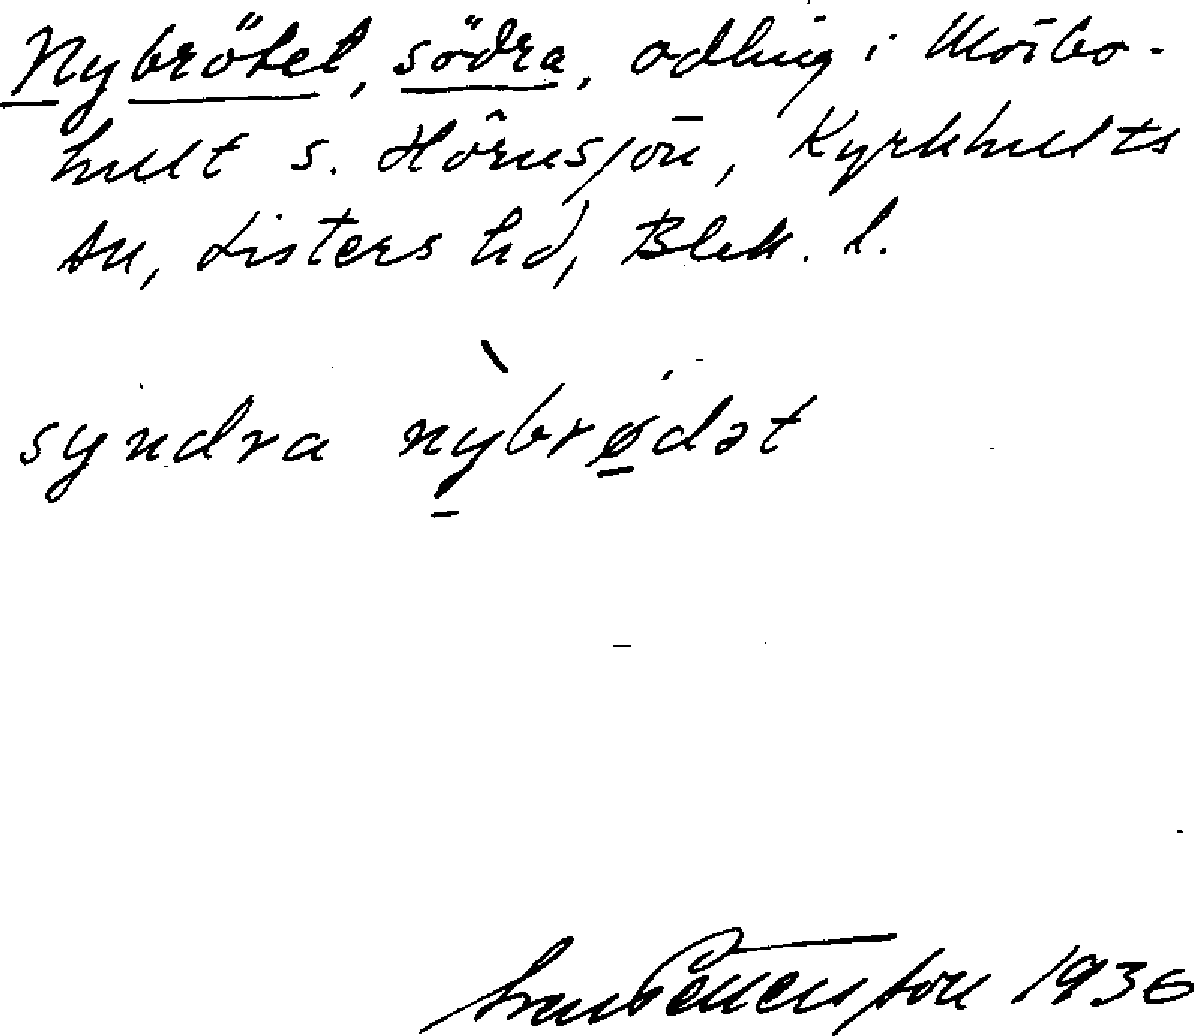 Nybrötet, södra, odling i
hult s. Hörnsjön, Kyrkhults
sn, Listers hd, Blek. l.
syndra nỳbrødət
1936